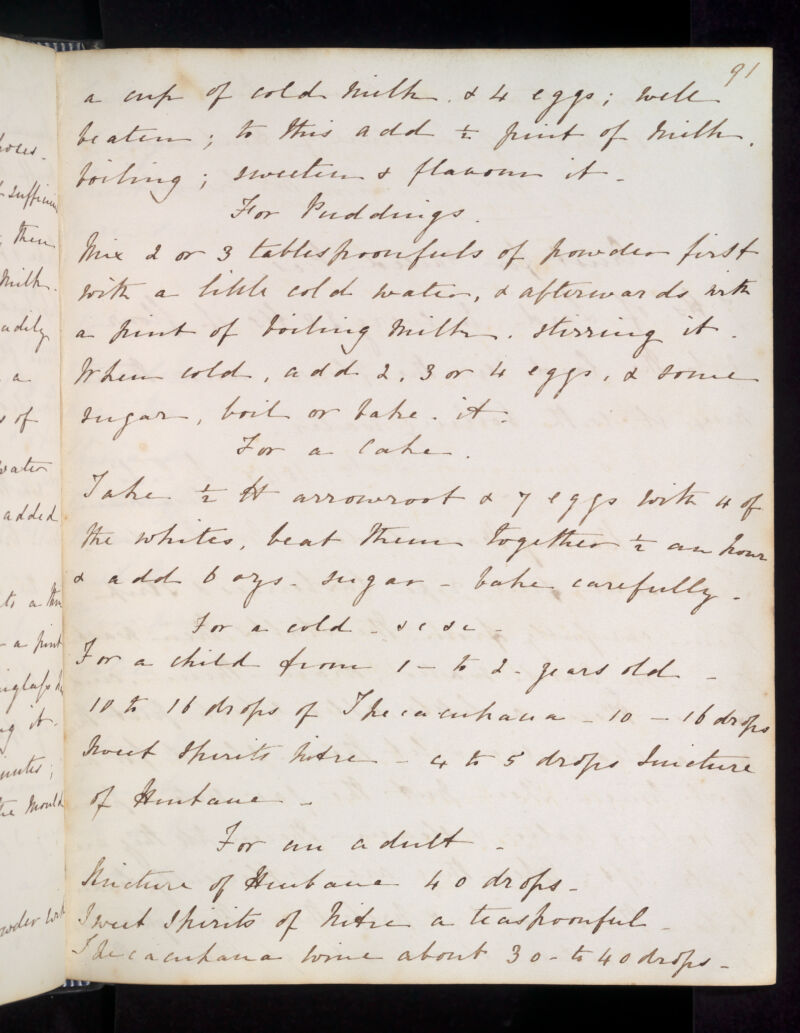 91
a cup of cold milk & 4 eggs; well
beaten; to this add ½ pint of milk.
boiling; sweeten & flavour it -
For Puddings.
Mix 2 or 3 tablespoonfuls of powder first
with a little cold water, & afterwards with
a pint of boiling milk. stirring it.
When cold, add 2, 3 or 4 eggs, & some
sugar, boil or bake it.
For a Cake.
Take ½ lb arrowroot & 7 eggs with 4 of
the whites, beat them together ½ an hour
& add 6 ozs. sugar - bake carefully -
For a cold - &c &c -
For a child from 1 - to 2 - years old -
10 to 16 drops of Ipecacuhana - 10 - 16 drops
Sweet Spirits Nitre - 4 to 5 drops Tincture
of Henbane -
For an adult -
Tincture of Henbane 40 drops -
Sweet Spirits of Nitre a teaspoonful -
Ipecacuhana wine about 30 - to 40 drops -
then
milk.
a
s of
water
added
a pint
ng it.
the mould